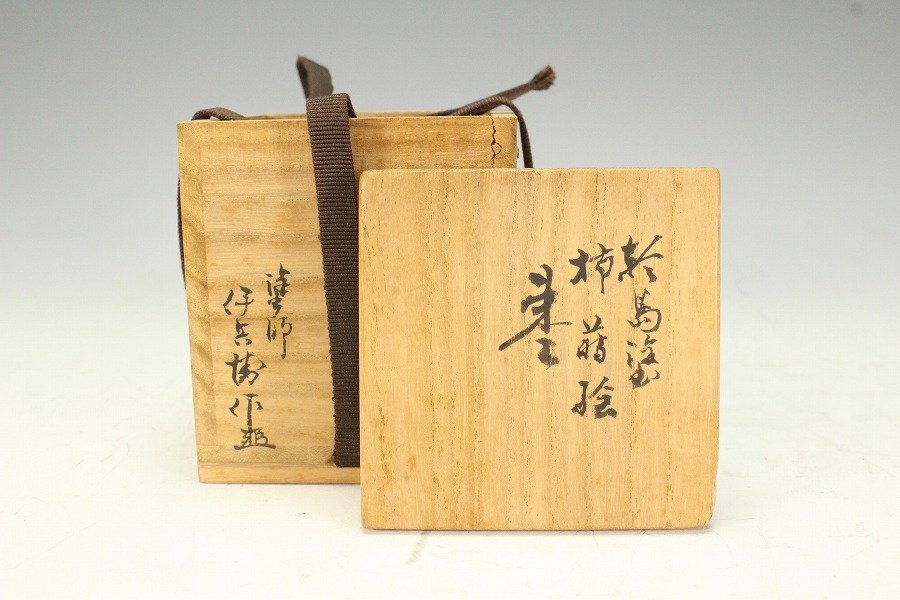 輪島塗
柿蒔絵
棗
塗師
伊兵衛作